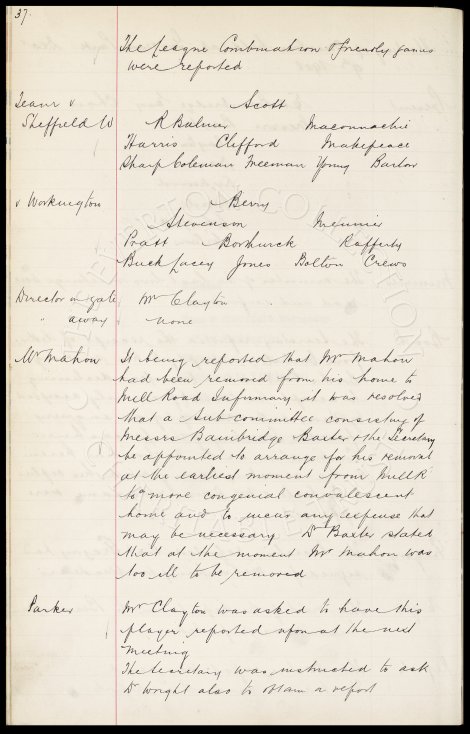 37.
The League Combination & friendly games
were reported
Team v Scott
Sheffield W R Balmer Maconnachie
Harris Clifford Makepeace
Sharp Coleman Freeman Young Barlow
v Workington Berry
Stevenson Meunier
Pratt Borthwick Rafferty
Buck Lacey Jones Bolton Crews
Director in gate Mr Clayton
" away none
Mr Mahon It being reported that Mr Mahon
had been removed from his home to
Mill Road Infirmary it was resolved
that a Sub committee consisting of
Messrs Bainbridge Baxter & the Secretary
be appointed to arrange for his removal
at the earliest moment from Mill R
to a more congenial convalescent
home and to incur any expense that
may be necessary. Dr Baxter stated
that at the moment Mr Mahon was
too ill to be removed
Parker Mr Clayton was asked to have this
player reported upon at the next
Meeting
The Secretary was instructed to ask
Dr Wright also to obtain a report